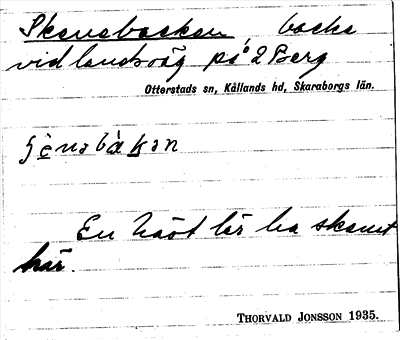 Skenabacken backe
vid landsväg på 2 Berg
Otterstads sn, Kållands hd, Skaraborgs län.
En häst lär ha skenat
här.
THORVALD JONSSON 1935.